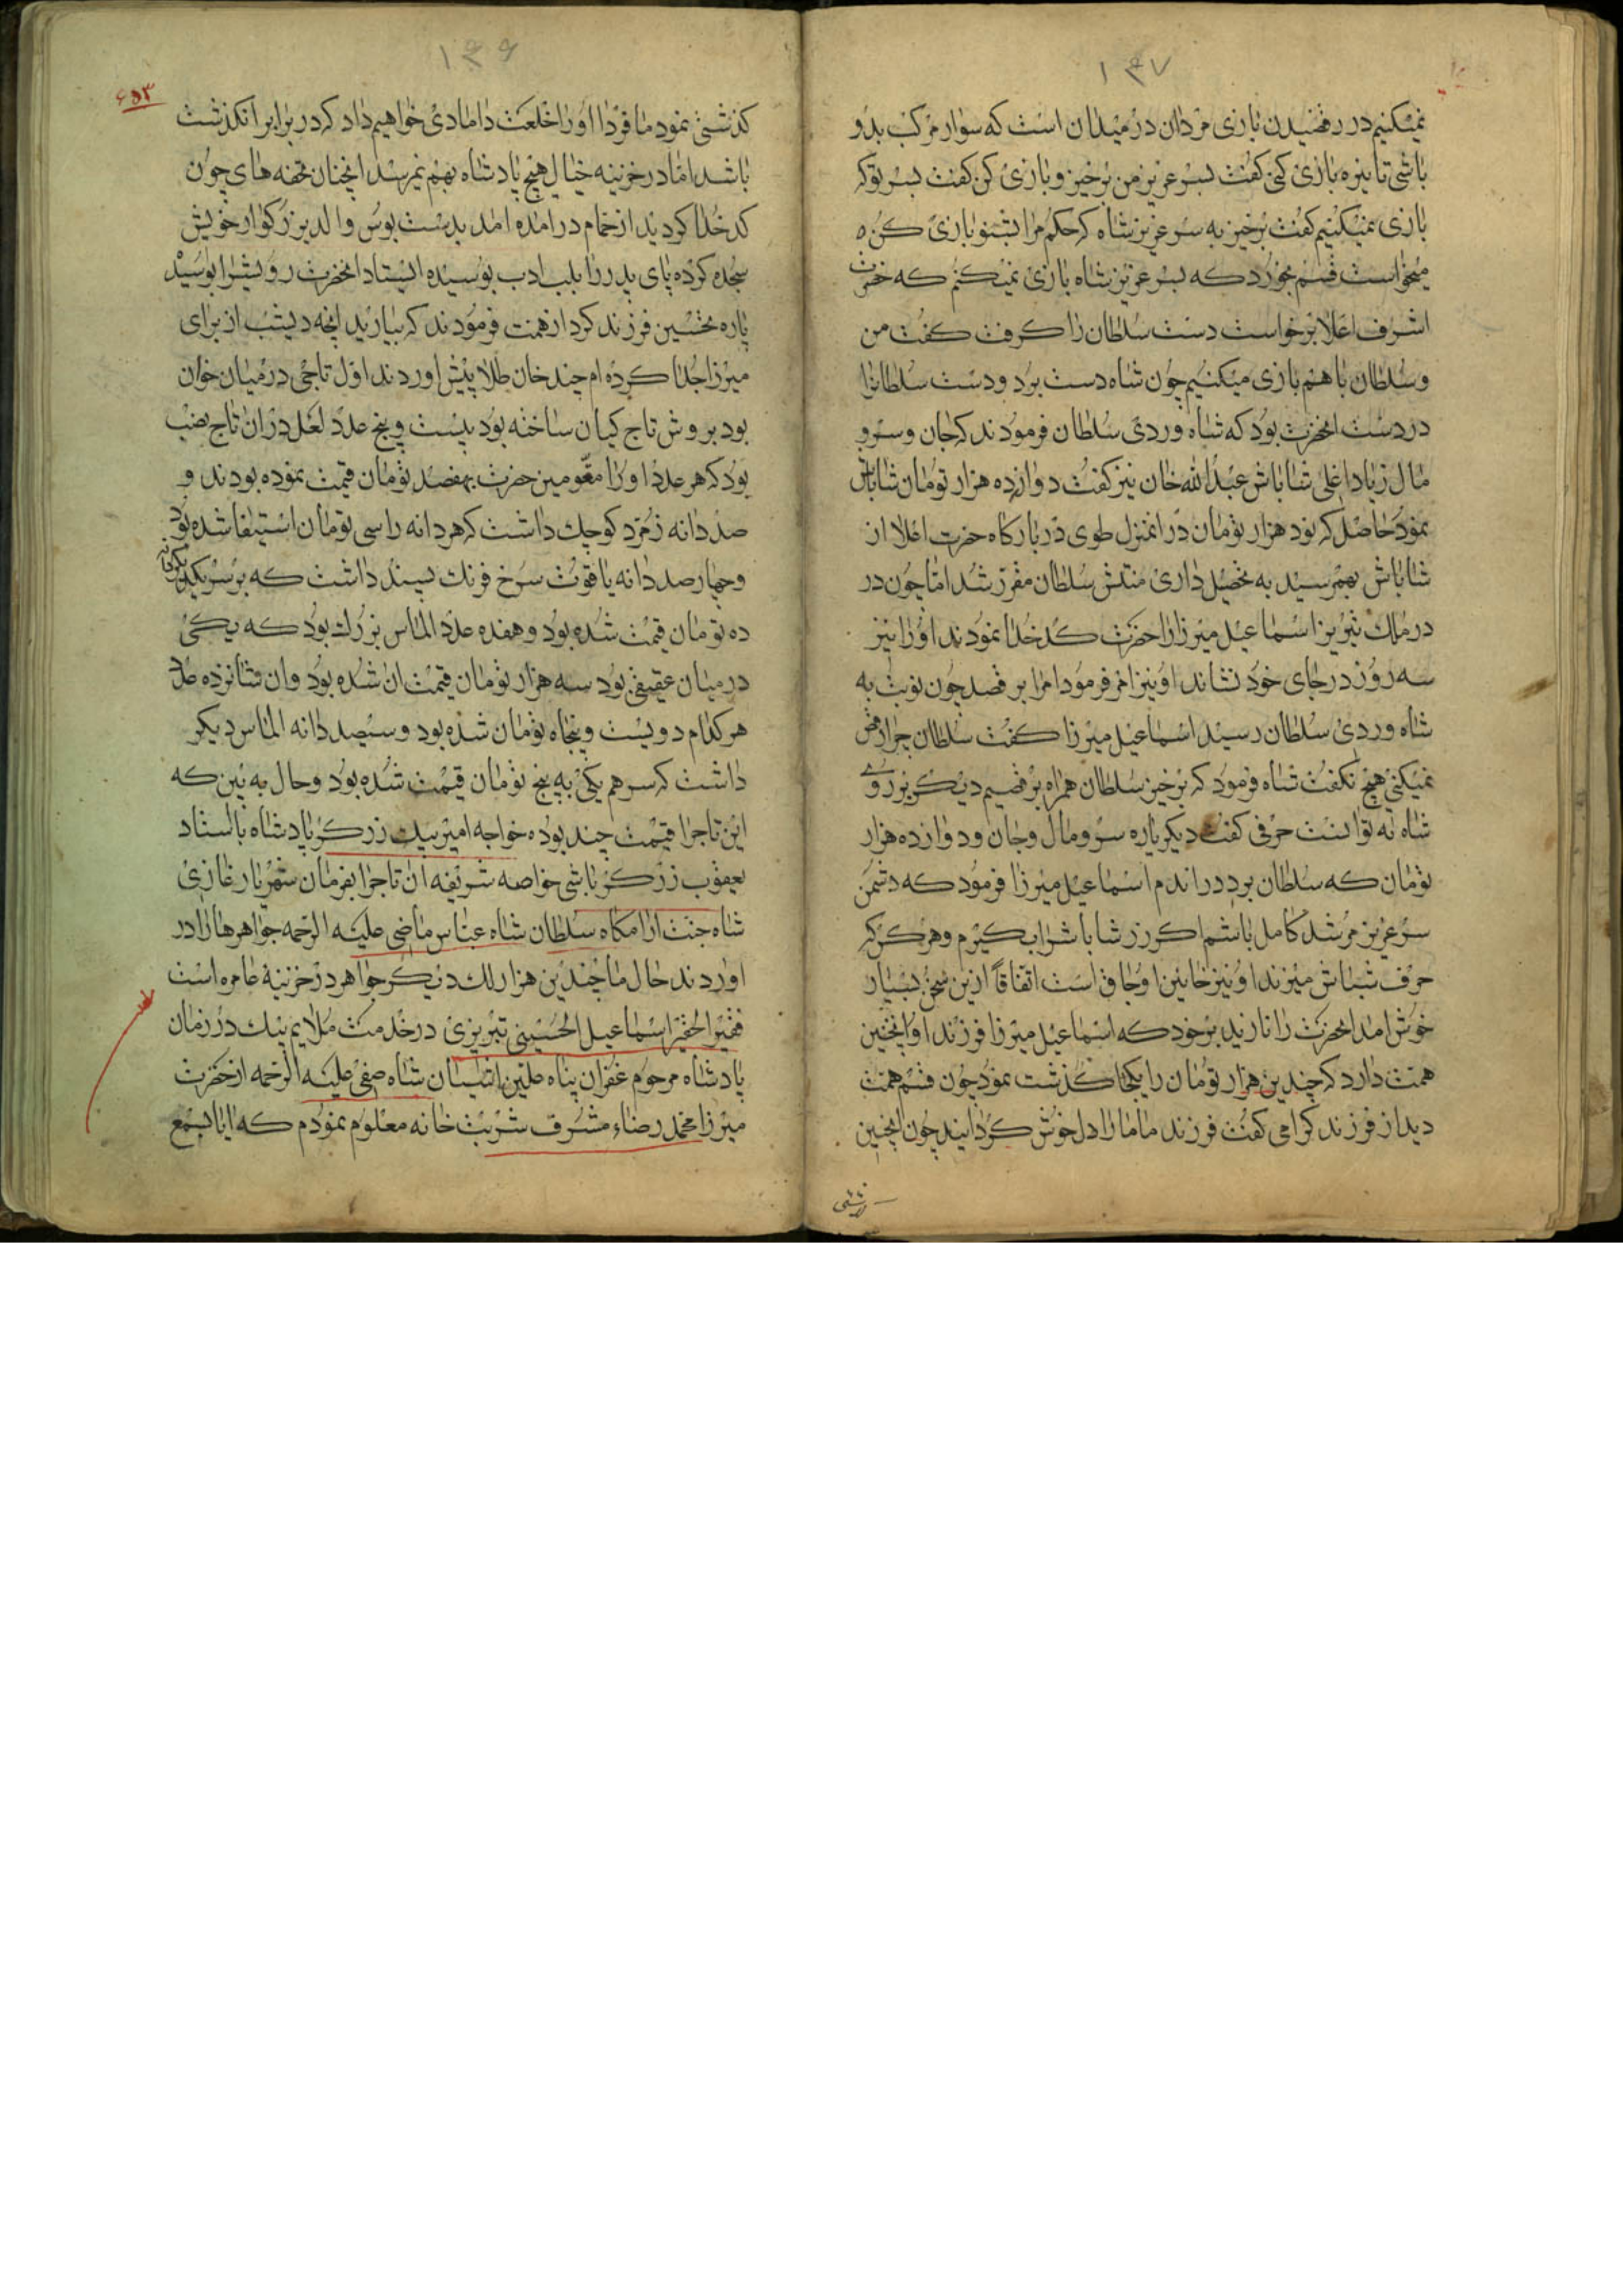 ۱۴۷
نمیکنیم در رقصیدن بازی مردان در میدان است که سوار مرکب بدو
باشی تا نیزه بازی کنی کفت بسر عزیز من برخیز و بازی کن کفت بسر توکه
بازی نمیکنیم کفت برخیز به سر عزیز شاه که حکم مرا بشنو بازی کن ه
میخواست قسم بخورد که بسر عزیز شاه بازی نمیکنم که حضرت
اشرف اعلا برخواست دست سلطان را کرفت کفت من
و سلطان با هم بازی میکنیم چون شاه دست برد و دست سلطانرا
در دست انحضرت بود که شاه وردی سلطان فرمودند که جان و سر و
مال زیاد اغلی شاباش عبدالله خان نیز کفت دوازده هزار تومان شاباش
نمود حاصل که نود هزار تومان در انمنزل طوی در بارکاه حضرت اعلا از
شاباش بهم رسید به تحصیل داری منتش سلطان مقرر شد اما چون در
در ملک تبریز اسماعیل میرزا را حضرت کدخدا نمودند او را نیز
سه روز در جای خود نشاند او نیز امر فرمود امرا بر قصد چون نوبت به
شاه وردی سلطان رسید اسماعیل میرزا کفت سلطان چرا رقص
نمیکنی هیچ نکفت شاه فرمود که برخیز سلطان همراه برقصیم دیکر بر روی
شاه نه توانست حرفی کفت دیکر باره سر و مال و جان و دوازده هزار
تومان که سلطان برد در اندم اسماعیل میرزا فرمود که دشمن
سر عزیز مرشد کامل باشم اکر زر شاباش را بکیرم و هر کز که
حرف شاباش میزند او نیز خاین اوجاق است اتفاقاً ازین سخن بسیار
خوش امد انحضرت را نازید بر خود که اسماعیل میرزا فرزند او اینچنین
همت دارد که چندین هزار تومان را یکجا کذشت نمود چون قسم همت
دید از فرزند کرامی کفت فرزند ما ما را دل خوش کردانید چون اینچنین
۱۴۶
۶۵۳
کذشتی نمود ما فردا او را خلعت دامادی خواهیم داد که در برابر انکذشت
باشد اما در خزینه خیال هیچ پادشاه بهم نمیرسد انچنان تحفه های چون
کدخدا کردید از حمام در امده امد بدست بوس والد بزرکوار خویش
سجده کرده پای پدر را بلب ادب بوسیده ایستاد انحضرت رویشرا بوسید
پاره تحسین فرزند کرد از همت فرمودند که بیارید انچه دیشب از برای
میرزا جدا کرده ام چند خان طلا پیش اوردند اول تاجی در میان خوان
بود بروش تاج کیان ساخته بود بیست و پنج عدد لعل در ان تاج نصب
بود که هر عدد او را مقومین حضرت بهفصد تومان قیمت نموده بودند و
صد دانه زمرد کوچک داشت که هر دانه را سی تومان استیفا شده بود
و چهار صد دانه یاقوت سرخ فرنک پسند داشت که بر سر یکدیکر
ده تومان قیمت شده بود و هفده عدد الماس بزرک بود که یکی
در میان عقیقی بود سه هزار تومان قیمت ان شده بود و ان شانزده عدد
هر کدام دویست و پنجاه تومان شده بود و سیصد دانه الماس دیکر
داشت که سر هم یکی به پنج تومان قیمت شده بود و حال به بین که
این تاجرا قیمت چند بوده خواجه امیر بیک زرکر پادشاه با استاد
یعقوب زرکر باشی خواصه شریفه ان تاجرا بفرمان شهریار غازی
شاه جنت ارامکاه سلطان شاه عباس ماضی علیه الرحمه جواهرها را در
اوردند حال ما چندین هزار لک دیکر جواهر در خزینهٔ عامره است
فقیر الحقیر اسماعیل الحسینی تبریزی در خدمت ملایم بیک در زمان
پادشاه مرحوم غفران پناه علیین اشیان شاه صفی علیه الرحمه از حضرت
میرزا محمد رضاء مشرف شربت خانه معلوم نمودم که ایا بسمع